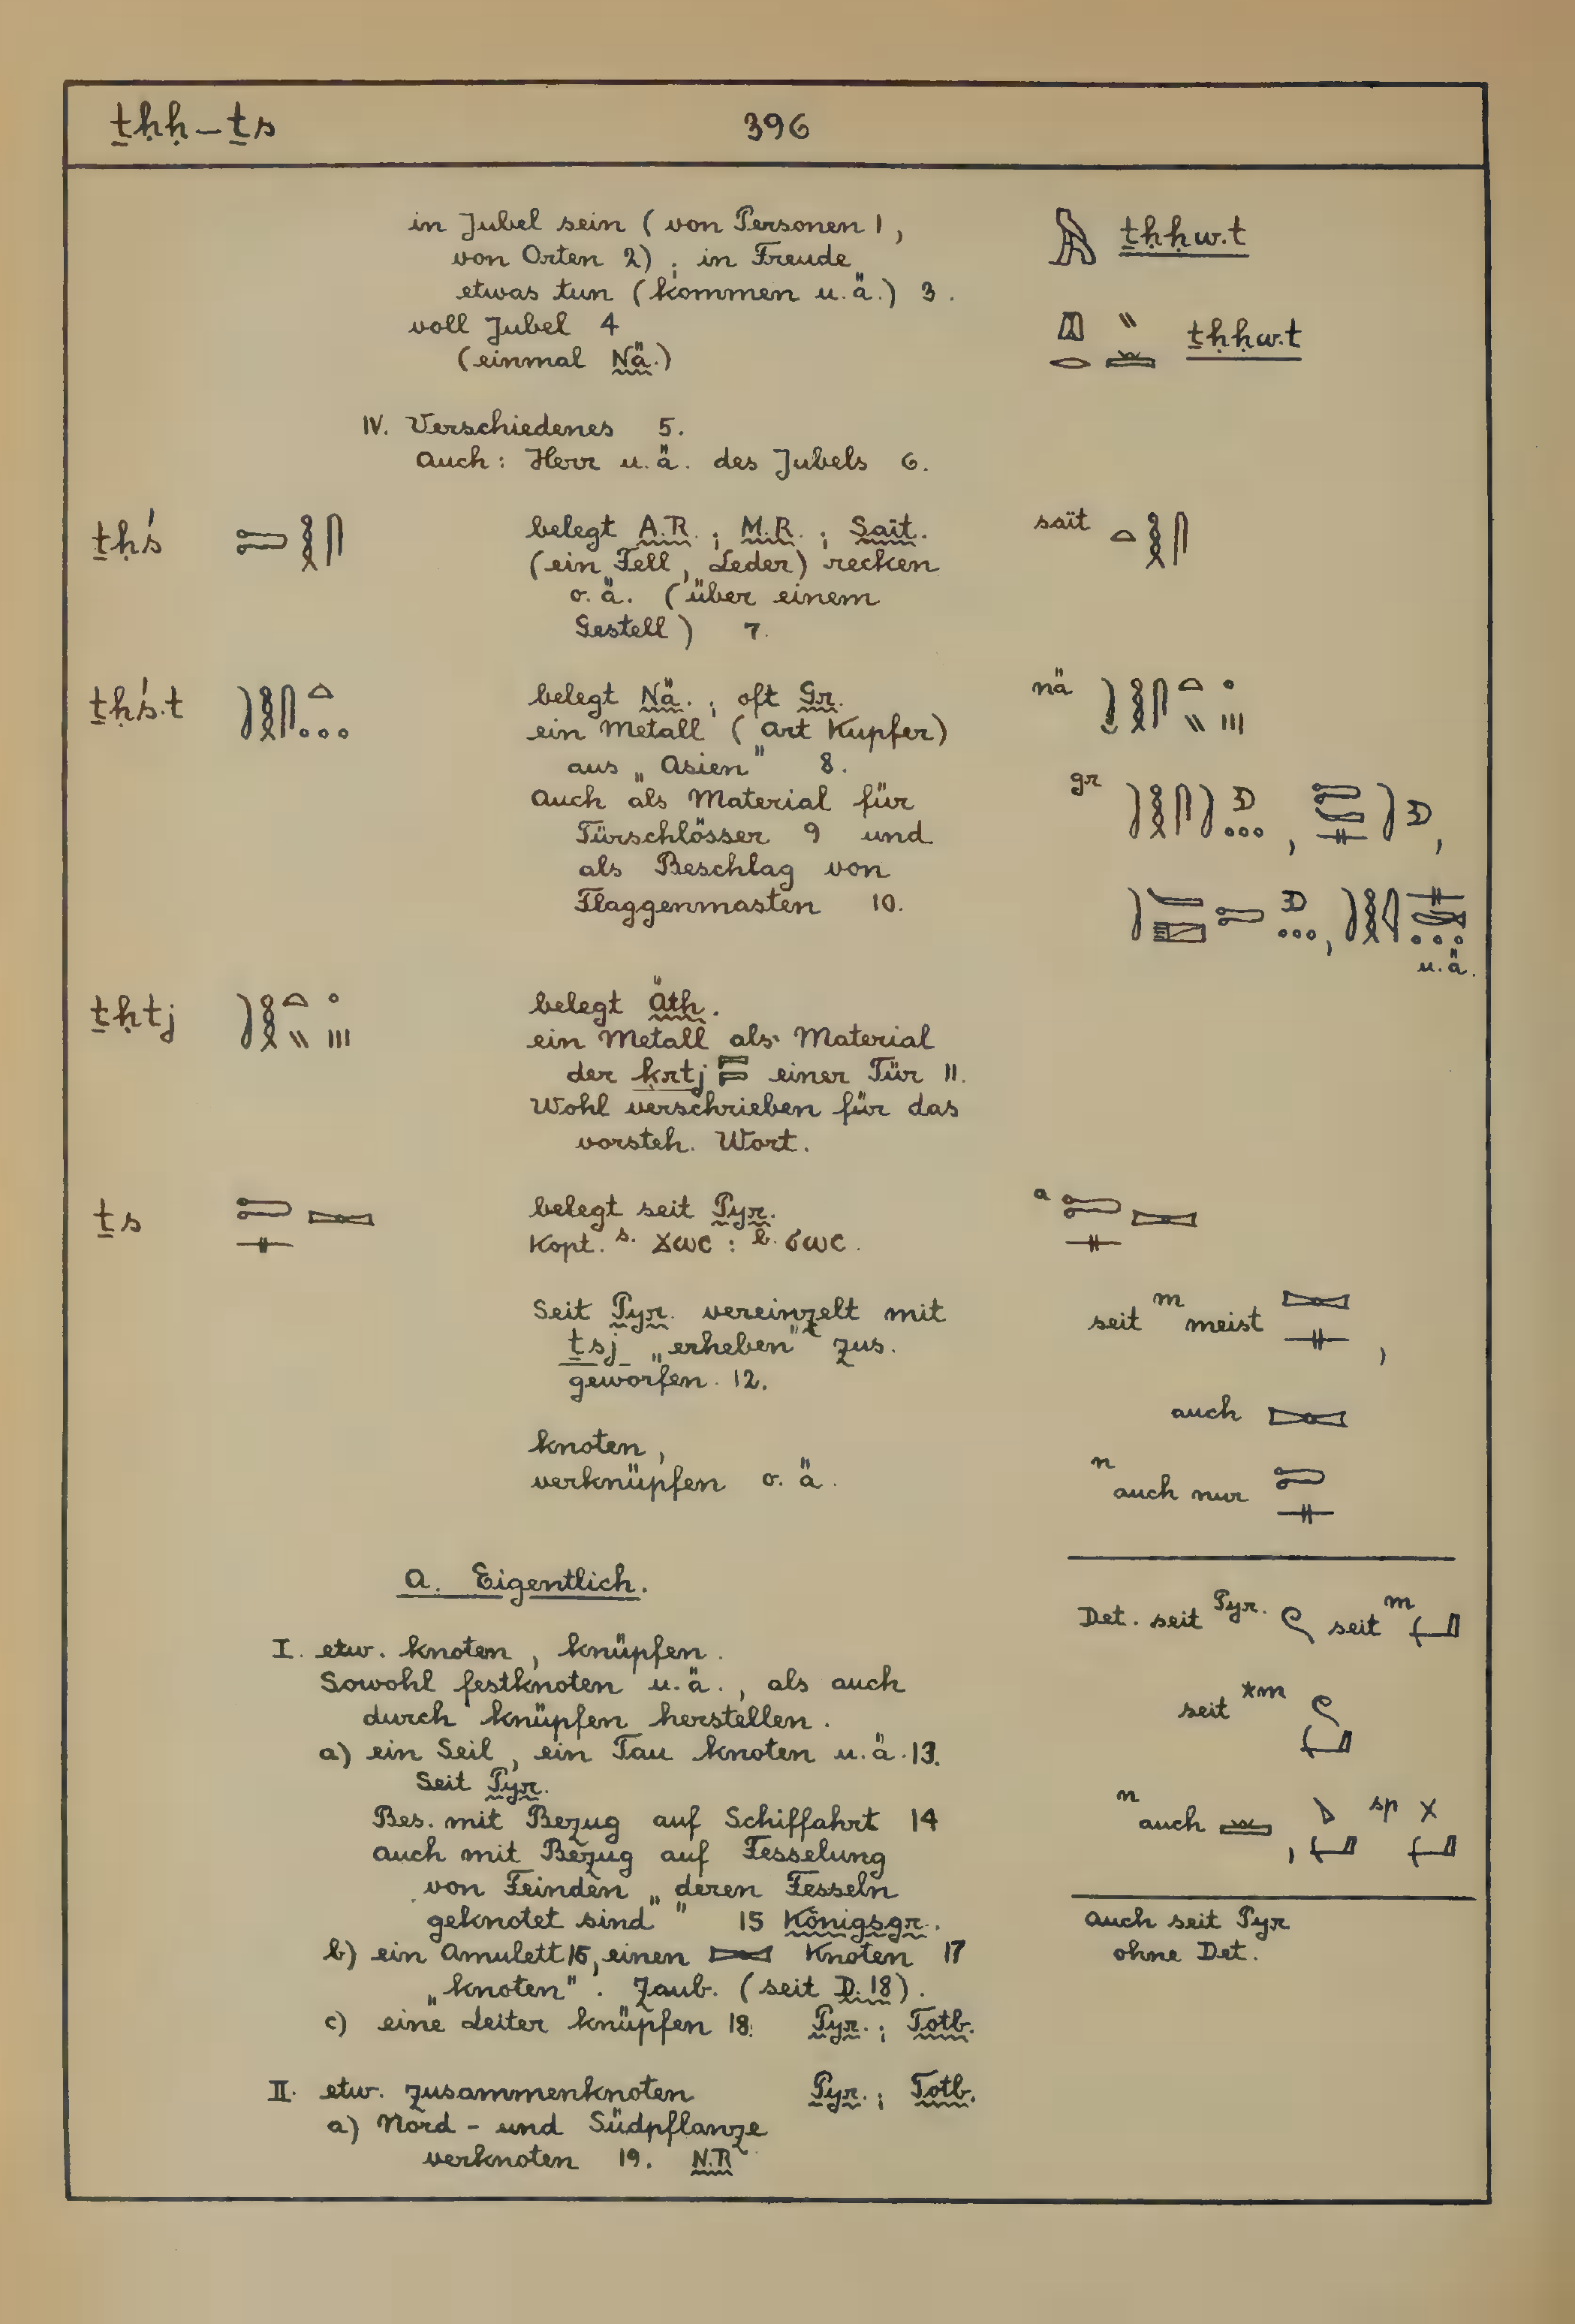 ṯḥḥ – ṯs
396
in Jubel sein ( von Personen 1 ,
von Orten 2) ; in Freude
etwas tun ( kommen u. ä. ) 3 .
voll Jubel 4
( einmal Nä. )
ṯḥḥw.t
ṯḥḥw.t
IV. Verschiedenes 5.
Auch : Herr u. ä. des Jubels 6.
ṯḥś
belegt A.R. ; M.R. ; Sait.
( ein Fell , Leder ) recken
o. ä. ( über einem
Gestell ) 7.
sait
ṯḥś.t
belegt Nä. ; oft Gr.
ein Metall ( Art Kupfer )
aus „ Asien " 8.
Auch als Material für
Türschlösser 9 und
als Beschlag von
Flaggenmasten 10.
nä
gr
u. ä.
ṯḥtj
belegt Äth.
ein Metall als Material
der ḳrtj einer Tür 11.
Wohl verschrieben für das
vorsteh. Wort.
ṯs
belegt seit Pyr.
Kopt. s. ϫⲱⲥ : b. ϭⲱⲥ .
Seit Pyr. vereinzelt mit
ṯsj „ erheben " zus.
geworfen. 12.
knoten ,
verknüpfen o. ä.
a
seit m meist ,
auch
n auch nur
A. Eigentlich.
I. etw. knoten , knüpfen .
Sowohl festknoten u. ä. , als auch
durch knüpfen herstellen .
a) ein Seil , ein Tau knoten u. ä. 13.
Seit Pyr.
Bes. mit Bezug auf Schiffahrt 14
auch mit Bezug auf Fesselung
von Feinden „ deren Fesseln
geknotet sind " 15 Königsgr.
b) ein Amulett 16, einen Knoten 17
„ knoten " . Zaub. ( seit D. 18 ) .
c) eine Leiter knüpfen 18. Pyr. ; Totb.
II. etw. zusammenknoten Pyr. ; Totb.
a) Nord - und Südpflanze
verknoten 19. N.R.
Det. seit Pyr. seit m
seit *m
n auch , sp
Auch seit Pyr
ohne Det.